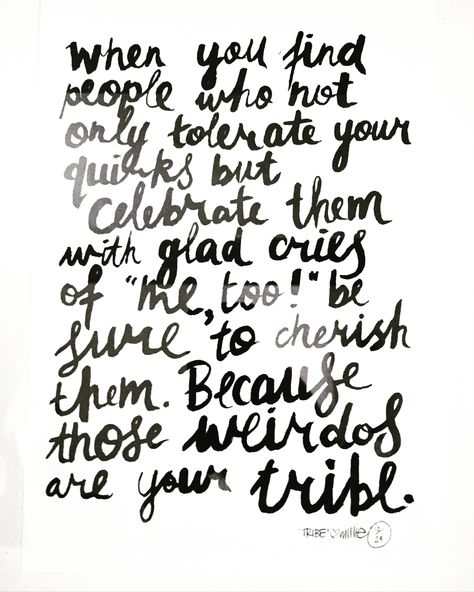 when you find
people who not
only tolerate your
quirks but
celebrate them
with glad cries
of "me, too!" be
sure to cherish
them. Because
those weirdos
are your tribe.
TRIBE